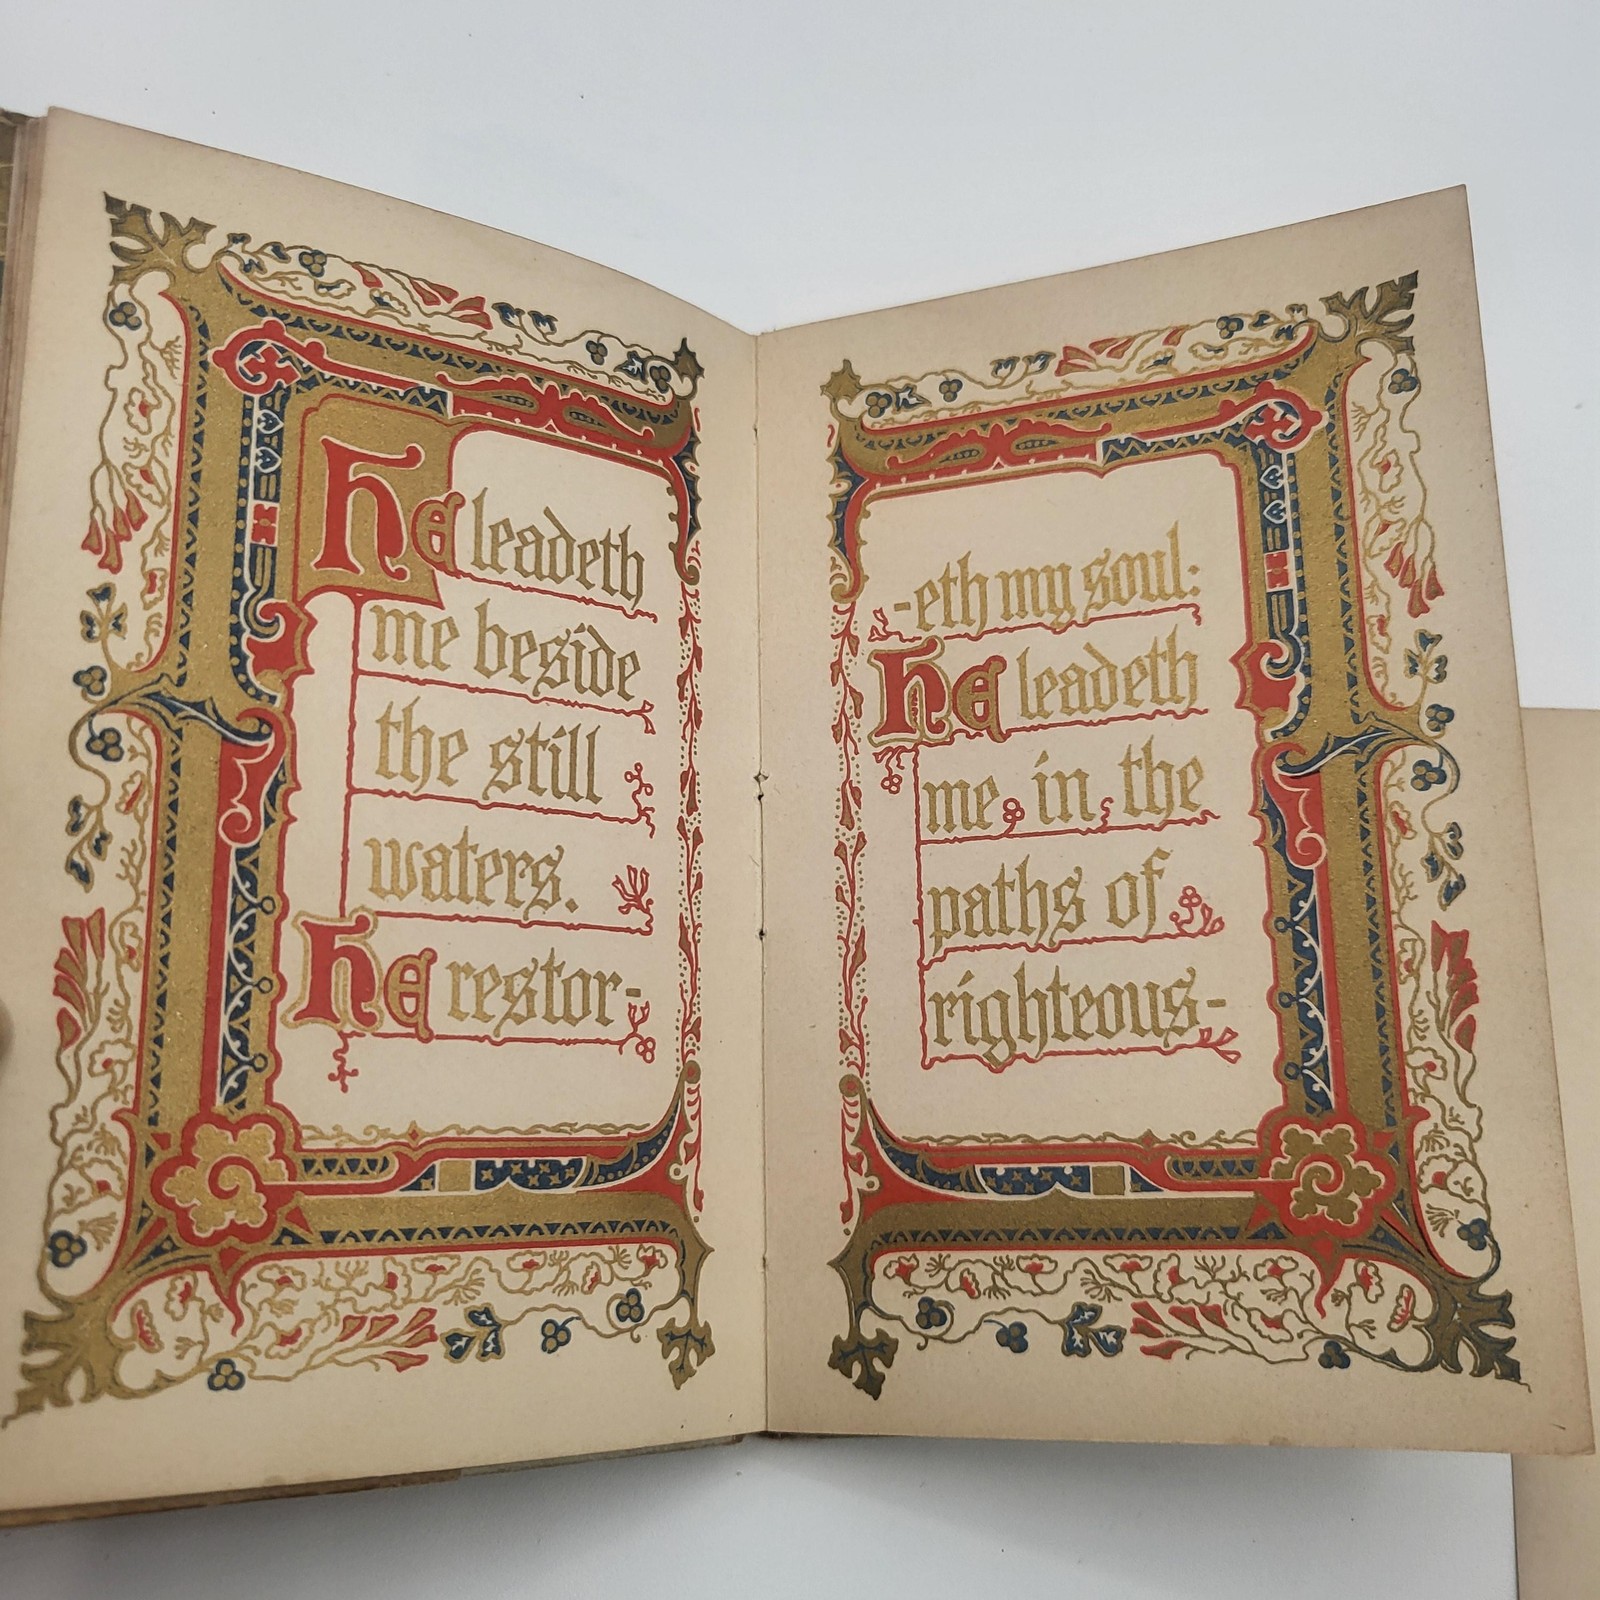 He leadeth
me beside
the still
waters.
He restor-
-eth my soul:
He leadeth
me in the
paths of
righteous-